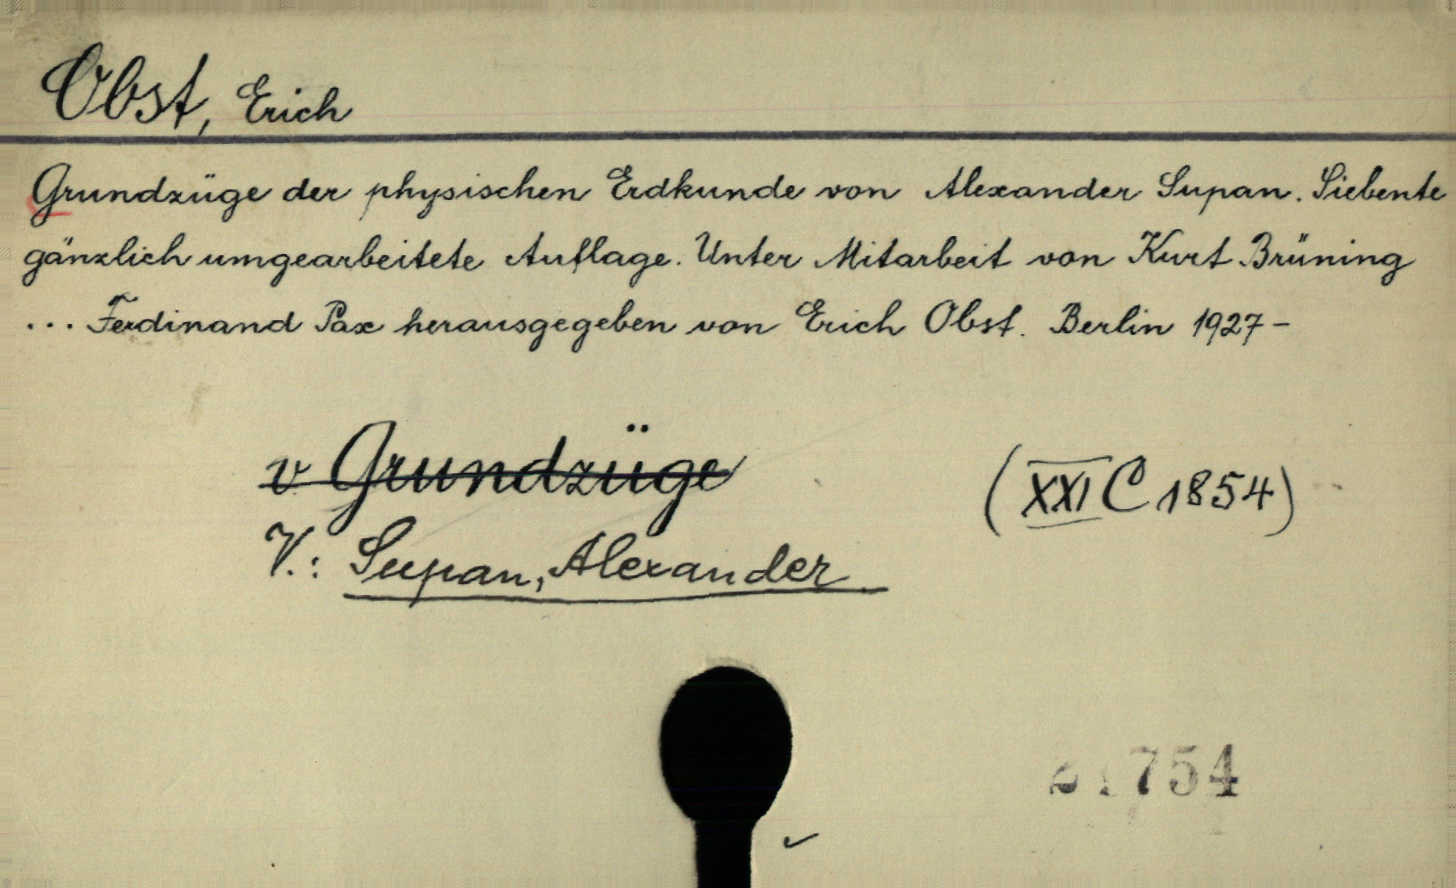 Obst, Erich
Grundzüge der physischen Erdkunde von Alexander Supan. Siebente
gänzlich umgearbeitete Auflage. Unter Mitarbeit von Kurt Brüning
... Ferdinand Pax herausgegeben von Erich Obst. Berlin 1927-
v Grundzüge
(XXI C 1854)
V.: Supan, Alexander